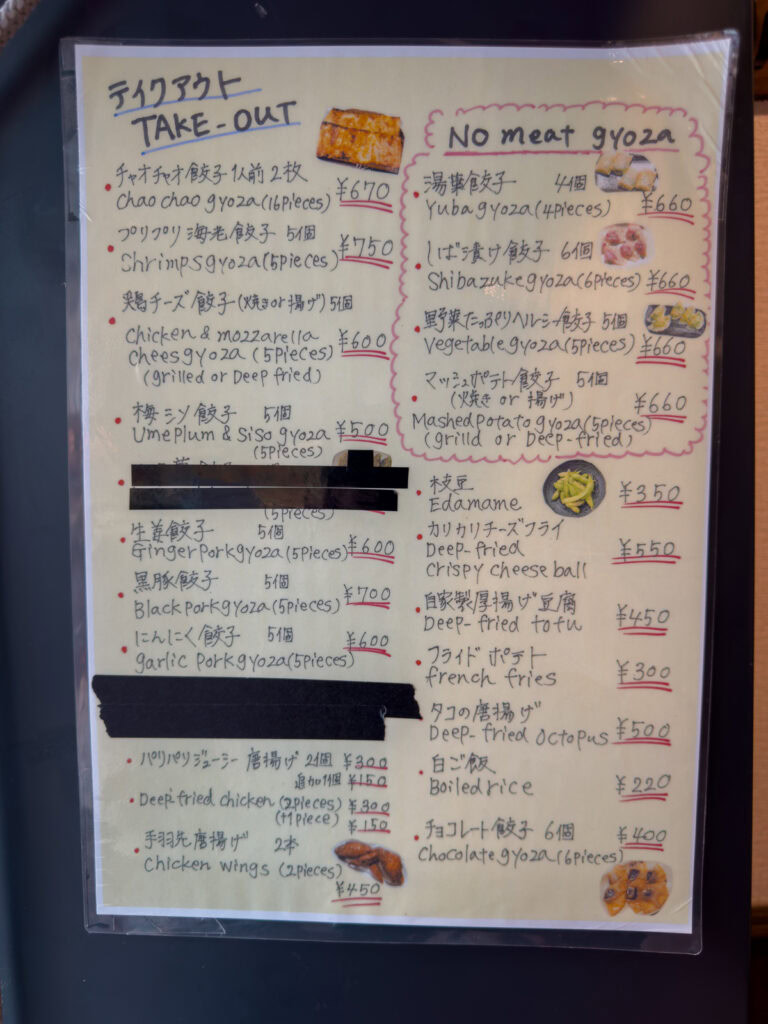 テイクアウト
TAKE-OUT
チャオチャオ餃子 1人前 2枚
chao chao gyoza (16pieces) ¥670
プリプリ海老餃子 5個
Shrimps gyoza (5pieces) ¥750
鶏チーズ餃子 (焼き or 揚げ) 5個
chicken & mozzarella
chees gyoza (5pieces) ¥600
(grilled or Deep fried)
梅シソ餃子 5個
Ume plum & siso gyoza ¥500
(5pieces)
(5pieces)
生姜餃子 5個
Ginger pork gyoza (5pieces) ¥600
黒豚餃子 5個
Black pork gyoza (5pieces) ¥700
にんにく餃子 5個
garlic pork gyoza (5pieces) ¥600
パリパリジューシー唐揚げ 2個 ¥300
追加1個 ¥150
Deep-fried chicken (2pieces) ¥300
(+1piece) ¥150
手羽先唐揚げ 2本
chicken wings (2pieces)
¥450
No meat gyoza
湯葉餃子 4個
Yuba gyoza (4pieces) ¥660
しば漬け餃子 6個
Shibazuke gyoza (6pieces) ¥660
野菜たっぷりヘルシー餃子 5個
vegetable gyoza (5pieces) ¥660
マッシュポテト餃子 5個
(焼き or 揚げ) ¥660
Mashed potato gyoza (5pieces)
(grilld or Deep-fried)
枝豆
Edamame ¥350
カリカリチーズフライ
Deep-fried ¥550
crispy cheese ball
自家製厚揚げ豆腐
Deep-fried tofu ¥450
フライドポテト
french fries ¥300
タコの唐揚げ
Deep-fried octopus ¥500
白ご飯
Boiled rice ¥220
チョコレート餃子 6個 ¥400
chocolate gyoza (6pieces)